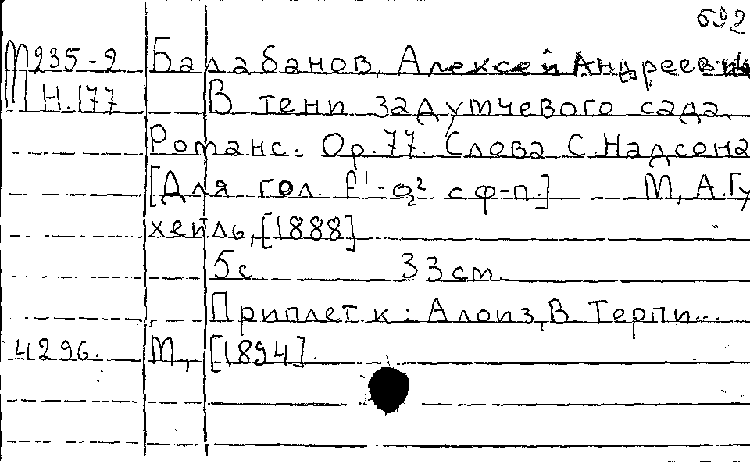 692
М 235-9 Балабанов, Алексей Андреевич
Н.177 В тени задумчевого сада
Романс. Op.77. Слова С.Надсона
[Для гол. f¹-g² с ф-п.] М, А.Гу
хейль, [1888]
5с 33см.
Приплет к: Алоиз, В. Терпи...
4296. М., [1894]